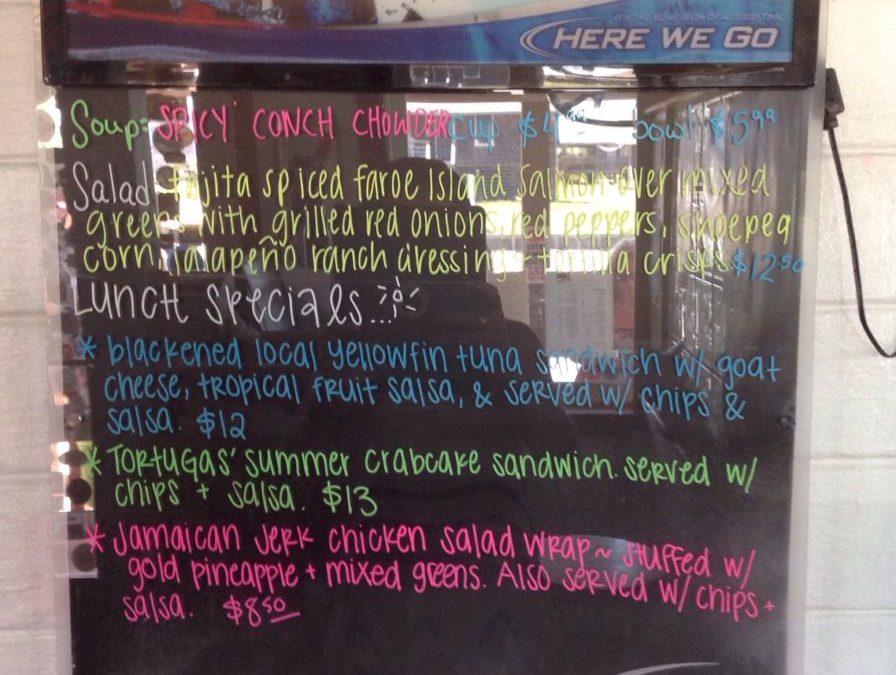 HERE WE GO
Soup: SPICY CONCH CHOWDER cup $4.99 bowl $5.99
Salad fajita spiced faroe Island salmon over mixed
greens with grilled red onions, red peppers, shoepeg
corn, jalapeño ranch dressing + tortilla crisps $12.50
Lunch Specials...
* blackened local yellowfin tuna sandwich w/ goat
cheese, tropical fruit salsa, & served w/ chips &
salsa. $12
* Tortugas' summer crabcake sandwich. served w/
chips + salsa. $13
* Jamaican Jerk chicken salad wrap ~ stuffed w/
gold pineapple + mixed greens. Also served w/ chips +
salsa. $8.50